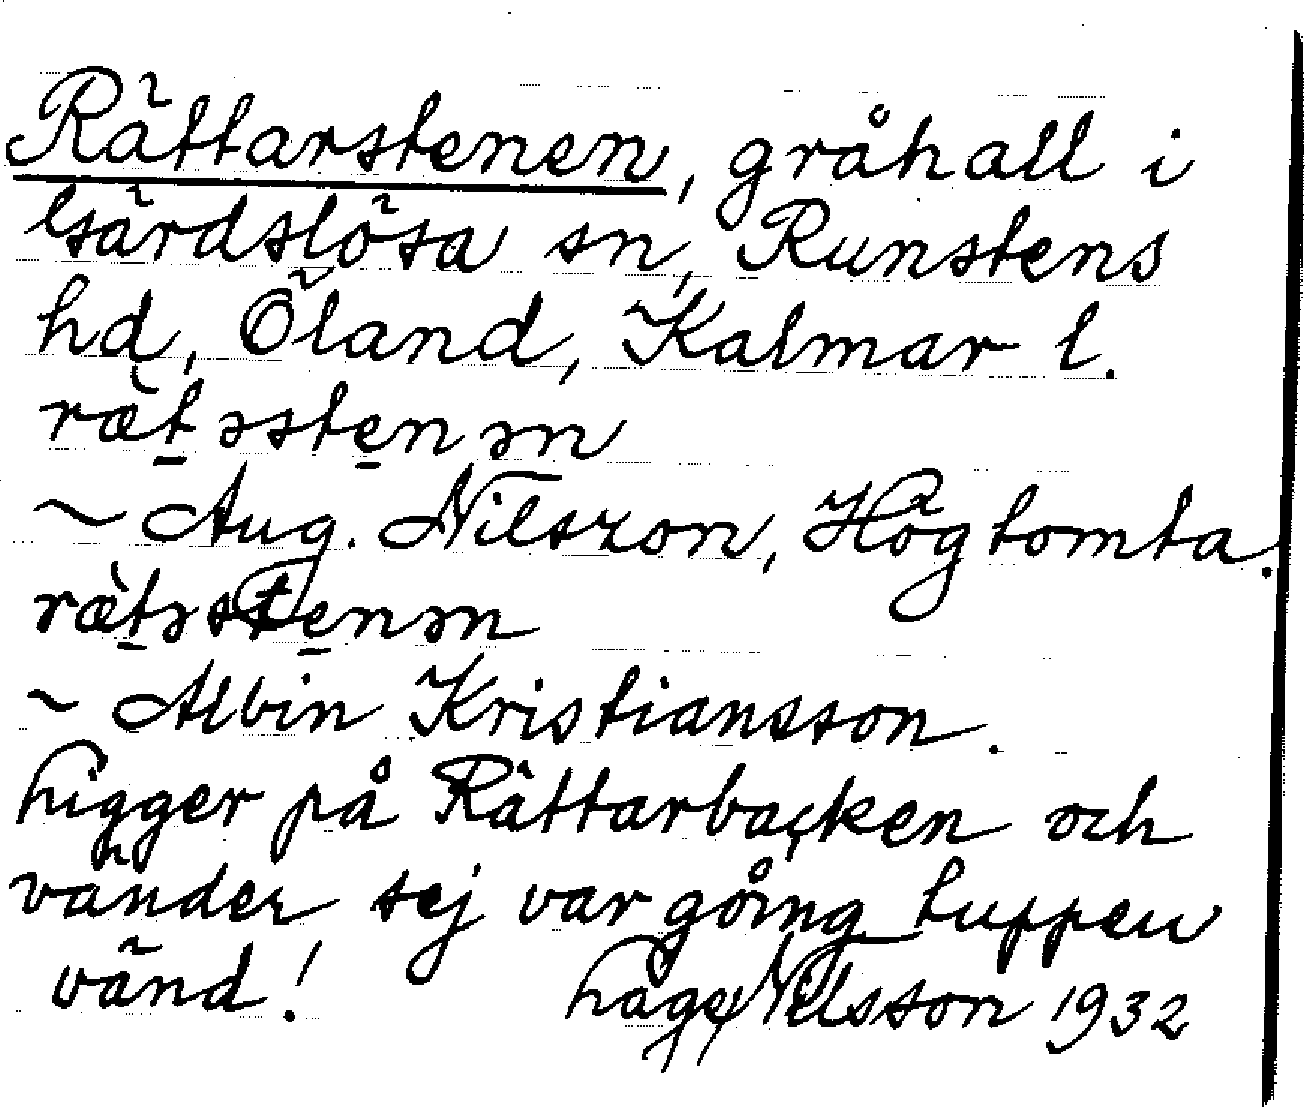 Rättarstenen, gråhall i
Gärdslösa sn, Runstens
hd, Öland, Kalmar l.
ræ̀t̲əste̲nən
~ Aug. Nilsson, Högtomta.
ræ̀t̲əste̲nən
~ Albin Kristiansson.
Ligger på Rättarbacken och
vänder sej var gång tuppen
vänd! Nilsson 1932